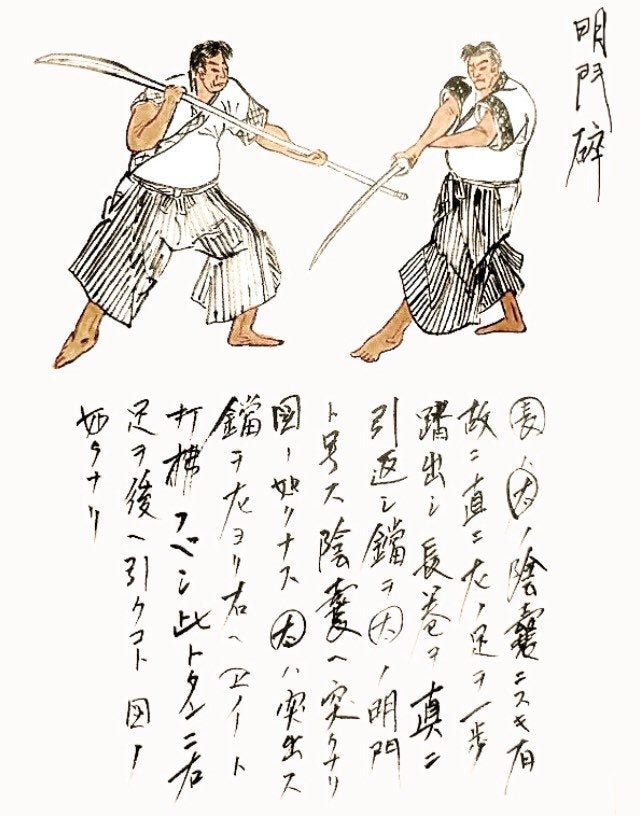 明門碎
㊀長ノ太ノ陰囊ニスキ有
故ニ直ニ左ノ足ヲ一歩
踏出シ長巻ヲ真ニ
引返シ鐺ヲ太ノ明門
ト号ス陰囊ヘ突クナリ
図ノ如クナス太ハ突出ス
鐺ヲ左ヨリ右ヘ エイート
打拂フベシ此トタンニ右
足ヲ後ヘ引クコト図ノ
如クナリ